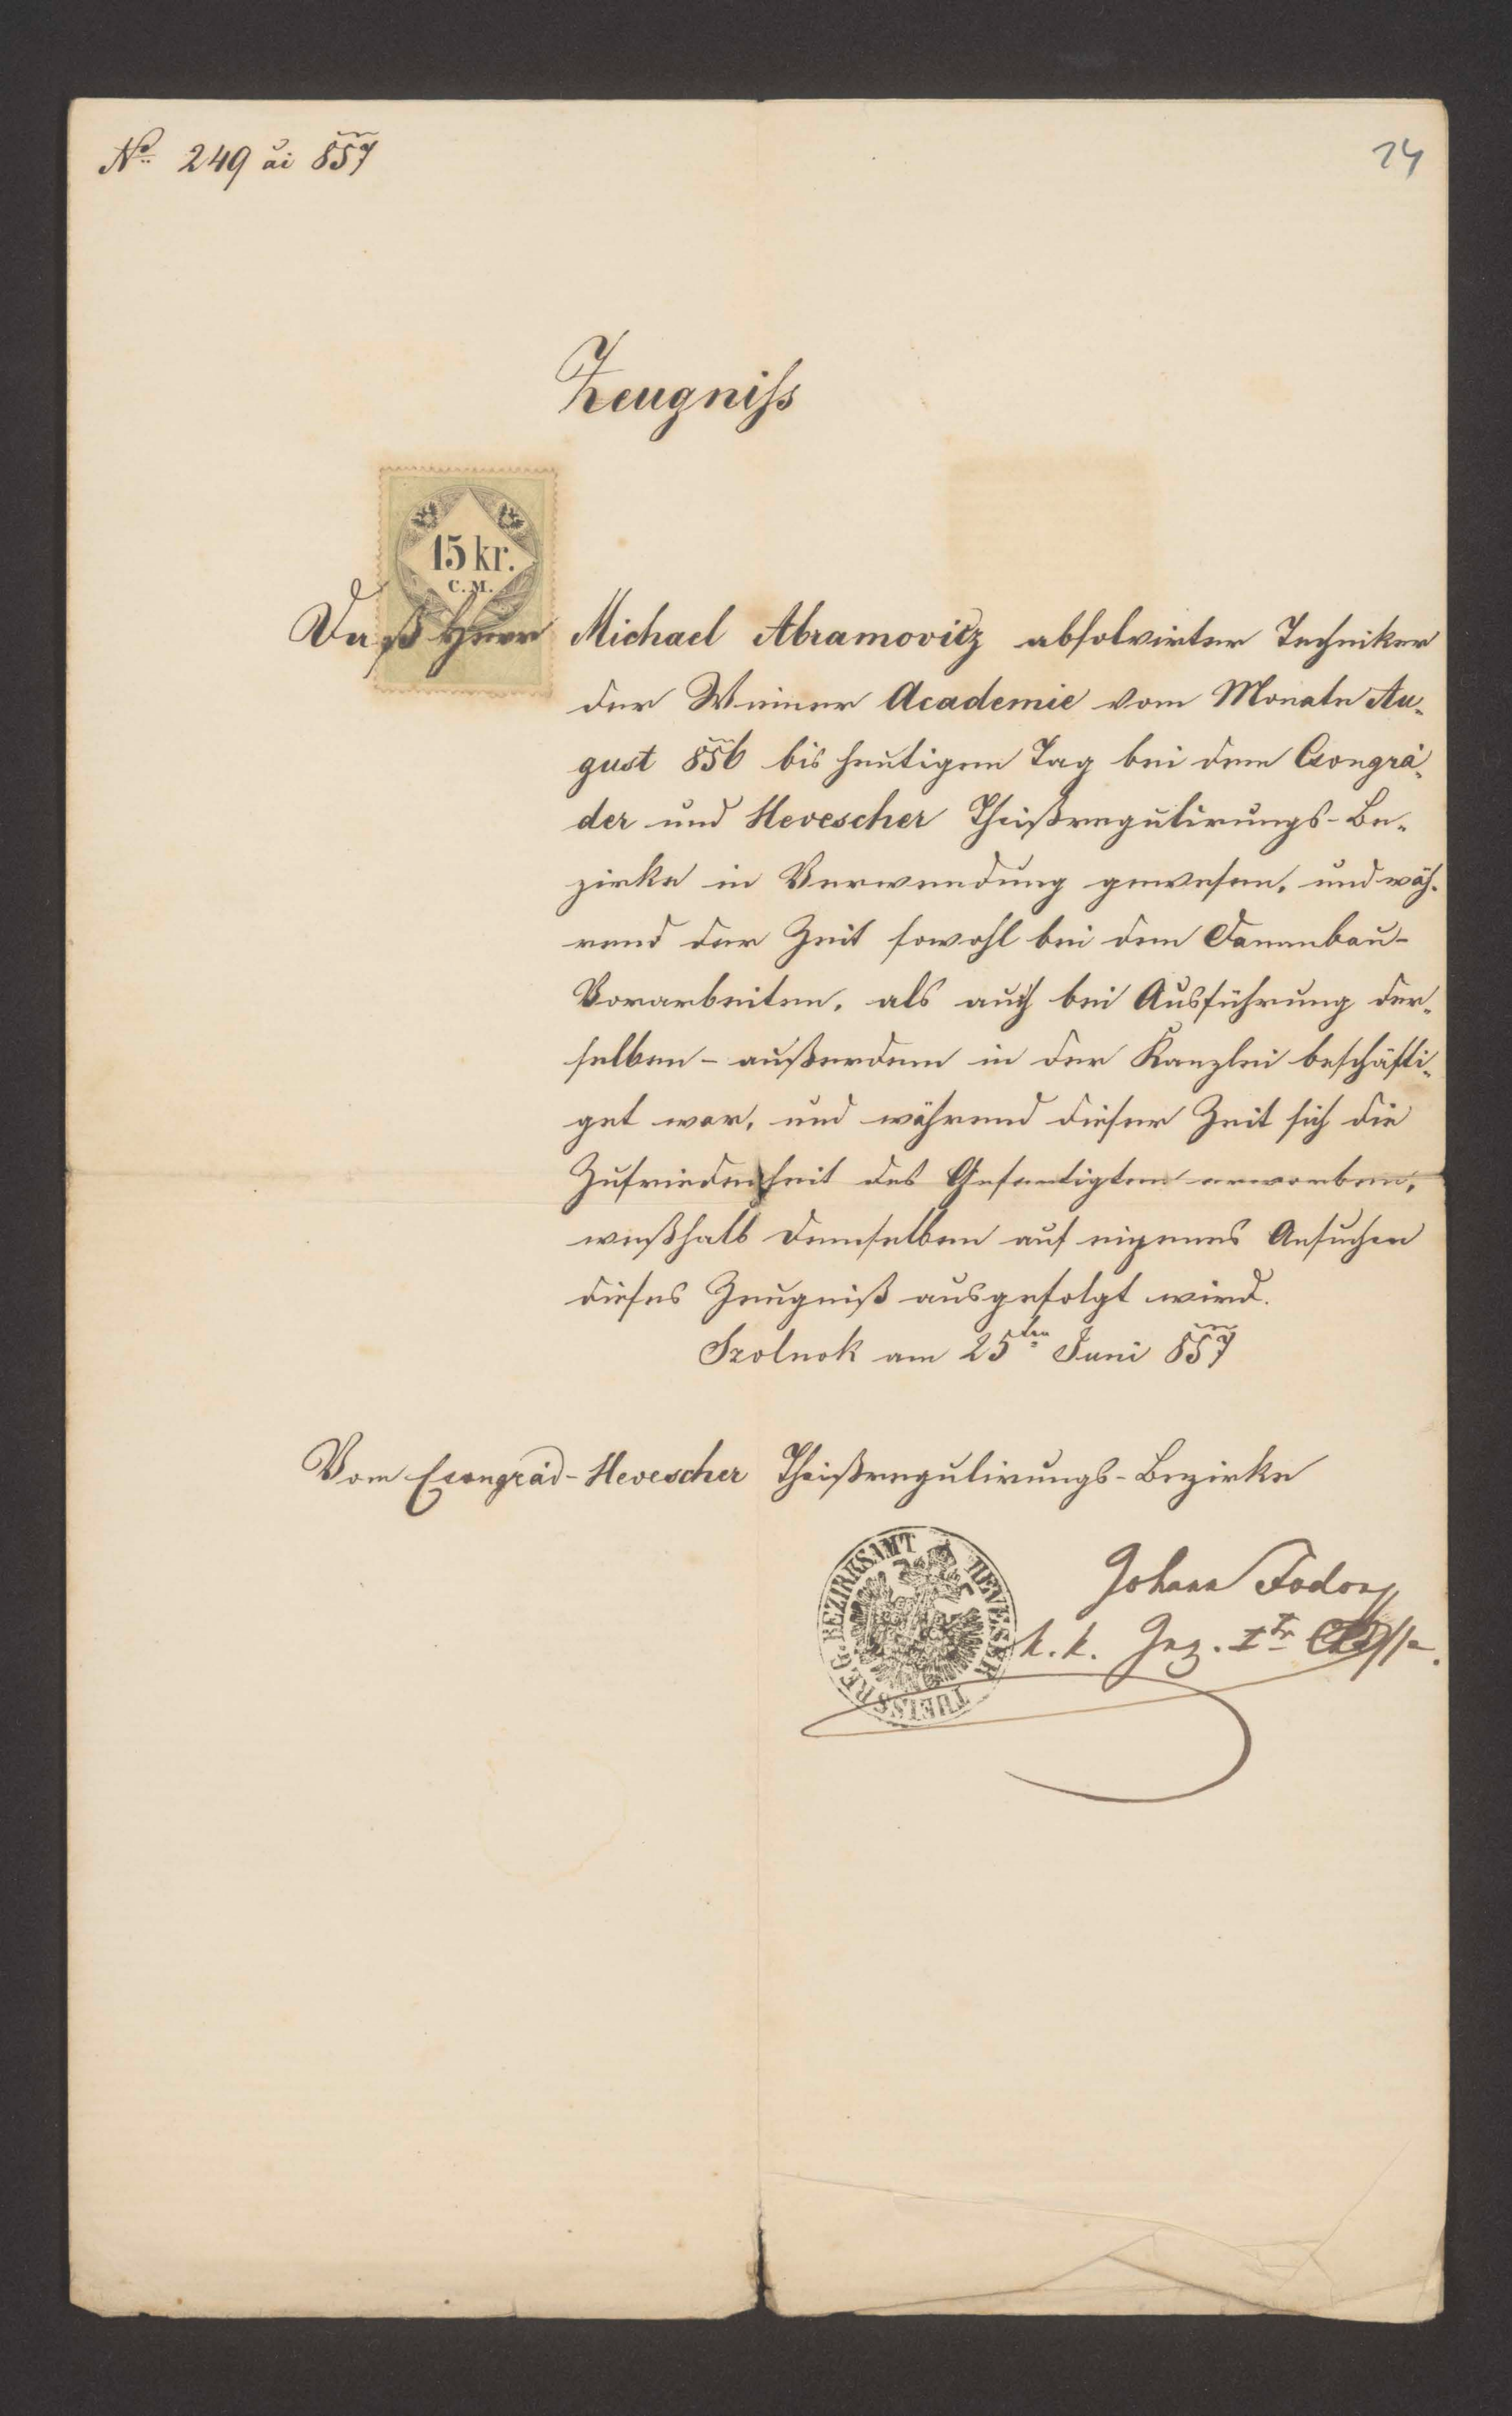 No 249 ai 857
14
Zeugniss
15 kr.
C.M.
Daß Herr Michael Abramovitz absolvirter Techniker
der Wiener Academie vom Monate Au„
gust 856 bis heutigem Tag bei dem Csongrá„
der und Hevescher Theißregulirungs-Be„
zirke in Verwendung gewesen, und wäh„
rend der Zeit sowohl bei dem Dammbau-
Vorarbeiten, als auch bei Ausführung der„
selben - außerdem in der Kanzlei beschäfti„
get war, und während dieser Zeit sich die
Zufriedenheit des Gefertigten erworben,
weßhalb demselben auf eigenes Ansuchen
dieses Zeugniß ausgefolgt wird.
Szolnok am 25ten Juni 857
Vom Csongrád-Hevescher Theißregulirungs-Bezirke
HEVESER THEISS REG. BEZIRKSAMT
Johann Fodor
k. k. Ing. Ir Classe.